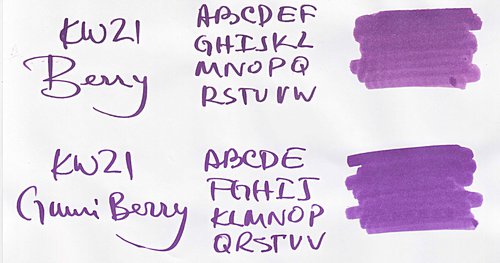 KWZI
Berry
ABCDEF
GHIJKL
MNOPQ
RSTUVW
KWZI
Gummi Berry
ABCDE
FGHIJ
KLMNOP
QRSTUV